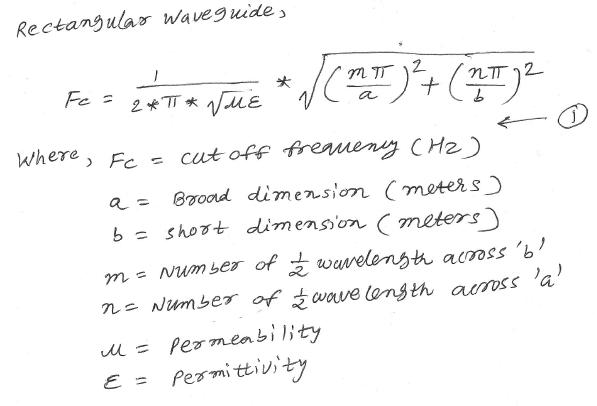 Rectangular Waveguide,
Fc = 1 / 2 * π * √με * √((mπ/a)² + (nπ/b)²)
①
Where, Fc = cut off frequency (Hz)
a = Broad dimension (meters)
b = short dimension (meters)
m = Number of 1/2 wavelength across 'b'
n = Number of 1/2 wavelength across 'a'
μ = Permeability
ε = Permittivity